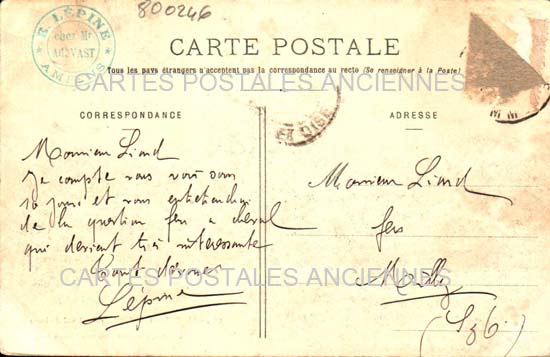 800246
E. LÉPINE
chez Mr
ADVVAST
AMIENS
CARTE POSTALE
Tous les pays étrangers n'acceptent pas la correspondance au recto (Se renseigner à la Poste)
CARTES POSTALES ANCIENNES
CORRESPONDANCE
ADRESSE
OISE
Monsieur Liard
Je compte vous voir dans
10 jours et vous entretenir
de la question fers à cheval
qui devient très intéressante
Lépine
Monsieur Liard
fers
CARTES POSTALES ANCIENNES